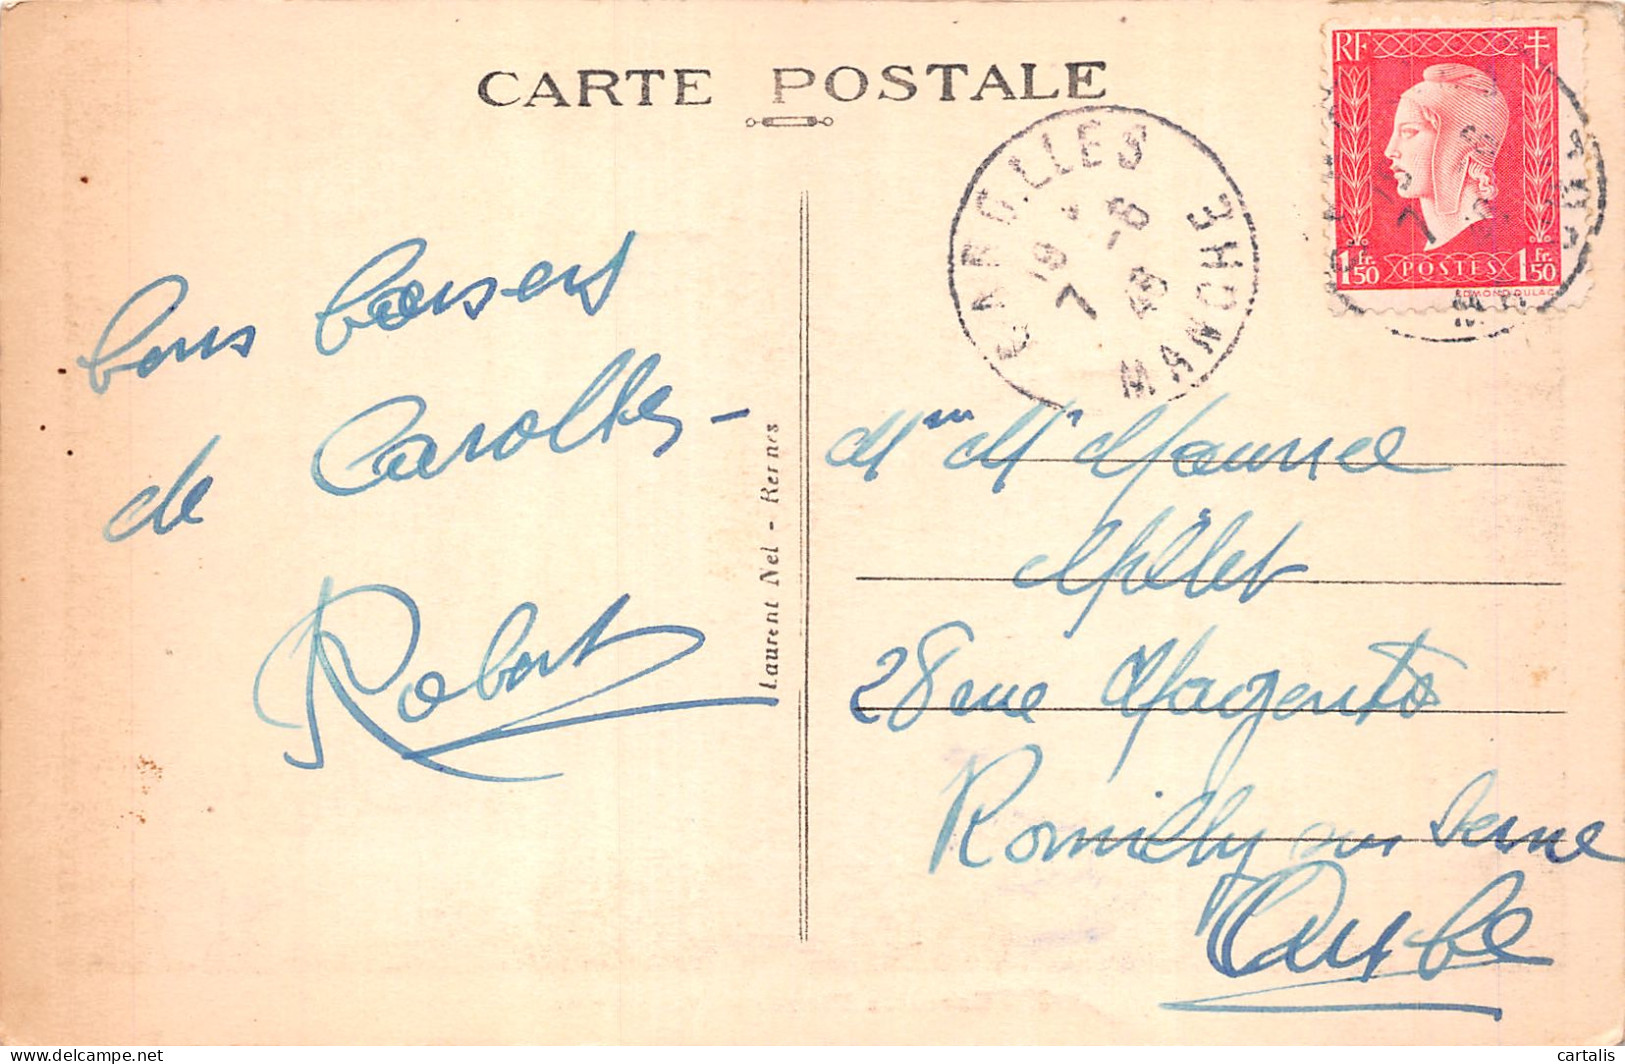 CARTE POSTALE
RF
1 Fr. 50 POSTES 1 Fr. 50
EDMOND DULAC
CAROLLES
19
7 -6
MANCHE
bons baisers
de Carolles -
Robert
Laurent Nel - Rennes
Mme Mr Maurice
Millet
28 rue Magenta
Romilly sur Seine
Aube
delcampe.net
cartalis